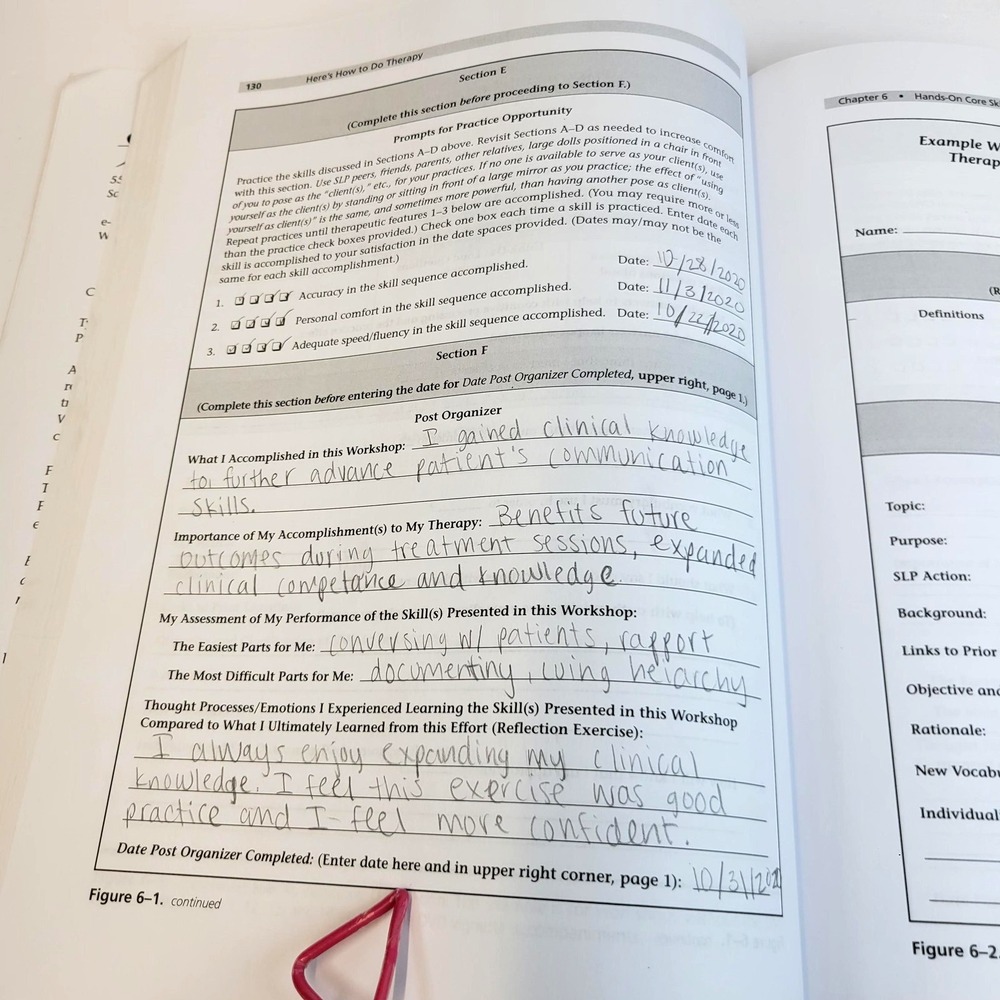 130 Here's How to Do Therapy
Section E
(Complete this section before proceeding to Section F.)
Prompts for Practice Opportunity
Practice the skills discussed in Sections A–D above. Revisit Sections A–D as needed to increase comfort
with this section. Use SLP peers, friends, parents, other relatives, large dolls positioned in a chair in front
of you to pose as the "client(s)," etc., for your practices. If no one is available to serve as your client(s), use
yourself as the client(s) by standing or sitting in front of a large mirror as you practice; the effect of "using
yourself as client(s)" is the same, and sometimes more powerful, than having another pose as client(s).
Repeat practices until therapeutic features 1–3 below are accomplished. (You may require more or less
than the practice check boxes provided.) Check one box each time a skill is practiced. Enter date each
skill is accomplished to your satisfaction in the date spaces provided. (Dates may/may not be the
same for each skill accomplishment.)
1. Accuracy in the skill sequence accomplished. Date: 10/28/2020
2. Personal comfort in the skill sequence accomplished. Date: 11/3/2020
3. Adequate speed/fluency in the skill sequence accomplished. Date: 10/22/2020
Section F
(Complete this section before entering the date for Date Post Organizer Completed, upper right, page 1.)
Post Organizer
What I Accomplished in this Workshop: I gained clinical knowledge
to further advance patient's communication
skills.
Importance of My Accomplishment(s) to My Therapy: Benefits future
outcomes during treatment sessions, expanded
clinical competance and knowledge.
My Assessment of My Performance of the Skill(s) Presented in this Workshop:
The Easiest Parts for Me: conversing w/ patients, rapport
The Most Difficult Parts for Me: documenting, cuing heiarchy
Thought Processes/Emotions I Experienced Learning the Skill(s) Presented in this Workshop
Compared to What I Ultimately Learned from this Effort (Reflection Exercise):
I always enjoy expanding my clinical
knowledge. I feel this exercise was good
practice and I feel more confident.
Date Post Organizer Completed: (Enter date here and in upper right corner, page 1): 10/31/
Figure 6–1. continued
Chapter 6 • Hands-On Core
Example
Name:
Definitions
Topic:
Purpose:
SLP Action:
Background:
Links to Prior
Objective
Rationale:
New
Figure 6–2.